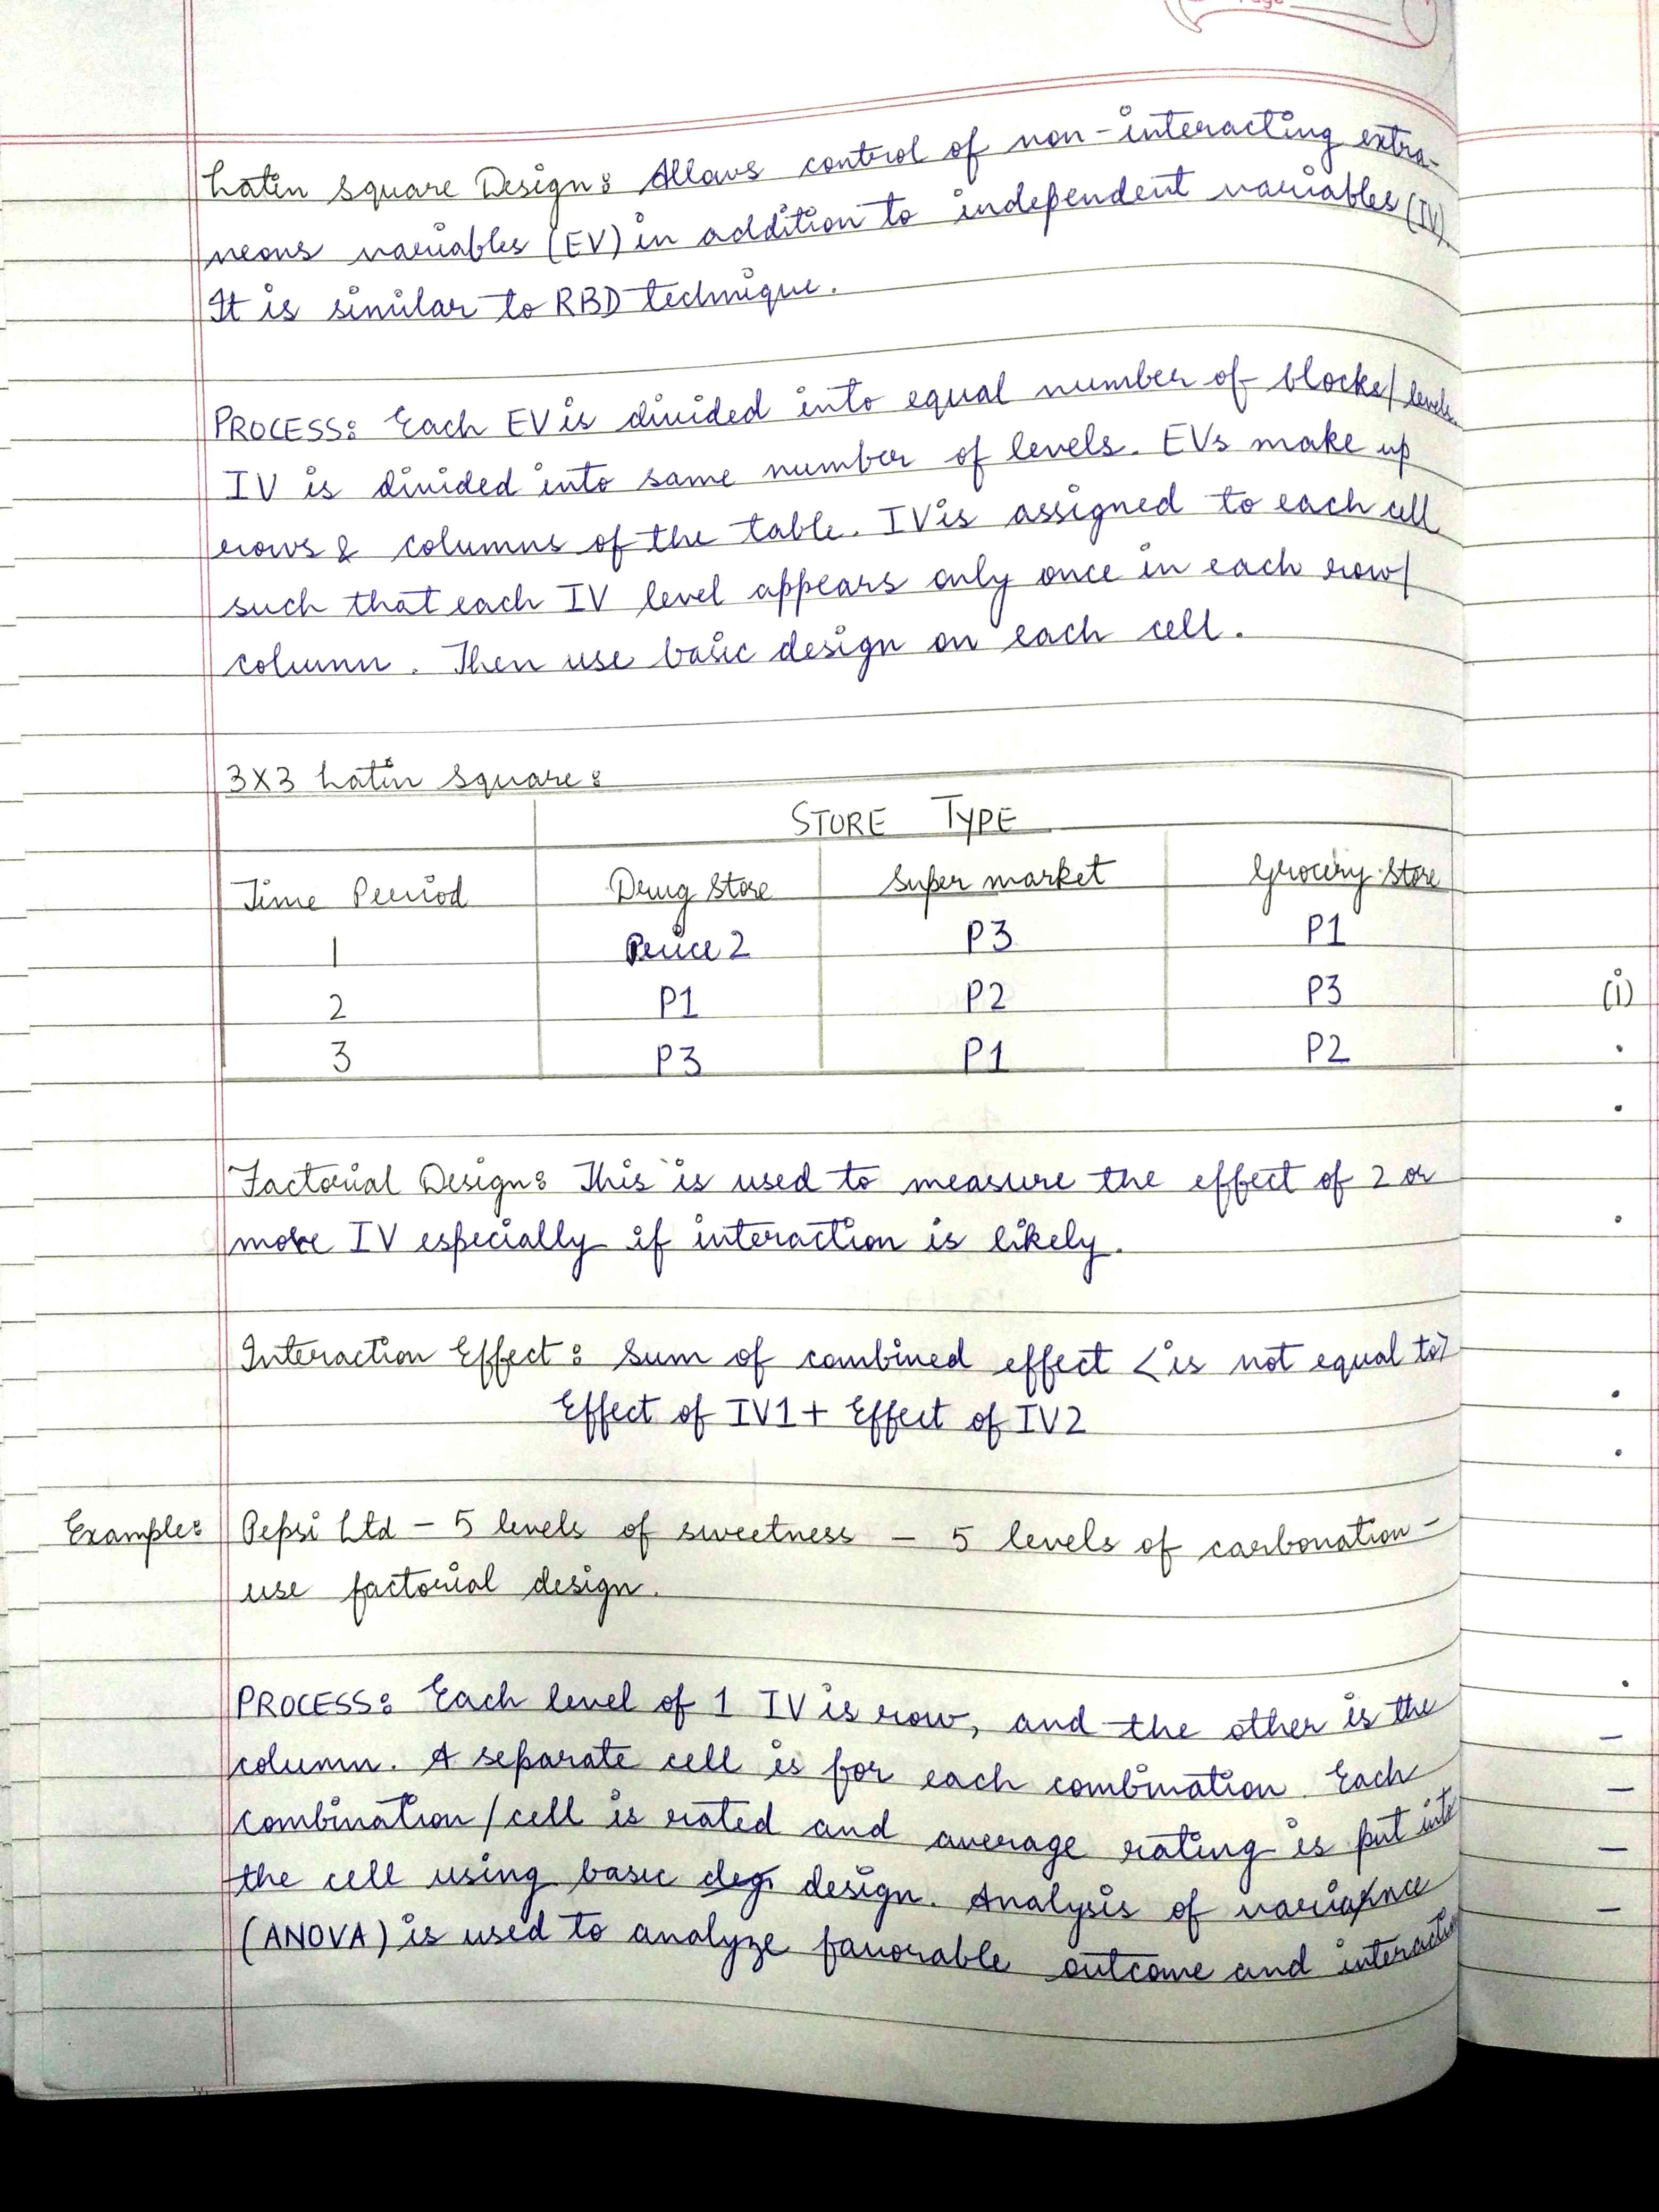 Page
Latin Square Design: Allows control of non-interacting extra-
neous variables (EV) in addition to independent variables (IV).
It is similar to RBD technique.
PROCESS: Each EV is divided into equal number of blocks/levels.
IV is divided into same number of levels. EVs make up
rows & columns of the table. IV is assigned to each cell
such that each IV level appears only once in each row/
column. Then use basic design on each cell.
3X3 Latin Square:
STORE TYPE
Time Period Drug Store Super market Grocery Store
1 Price 2 P3 P1
2 P1 P2 P3
3 P3 P1 P2
Factorial Design: This is used to measure the effect of 2 or
more IV especially if interaction is likely.
Interaction Effect: Sum of combined effect <is not equal to>
Effect of IV1 + Effect of IV2
Example: Pepsi Ltd - 5 levels of sweetness - 5 levels of carbonation -
use factorial design.
PROCESS: Each level of 1 IV is row, and the other is the
column. A separate cell is for each combination. Each
combination/cell is rated and average rating is put into
the cell using basic design. Analysis of variance
(ANOVA) is used to analyze favorable outcome and
(i)